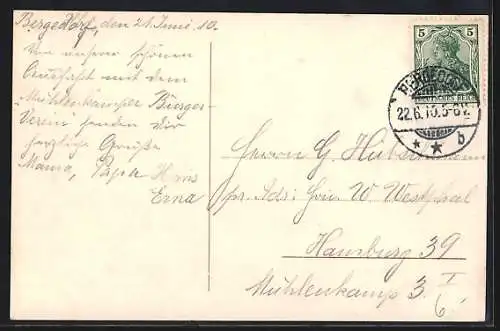 Bergedorf, den 21. Juni 10.
Von unserer schönen
Ausfahrt mit dem
"Mühlenkamper Bürger-
Verein" senden dir
herzliche Grüße
Mama, Papa Hans
Erna
5 5
DEUTSCHES REICH
BERGEDORF
22.6.10.5-6V.
* * b
Herrn G. Hubermann
pr. Adr: Frau W. Westphal
Hamburg 39
Mühlenkamp 3. I
6